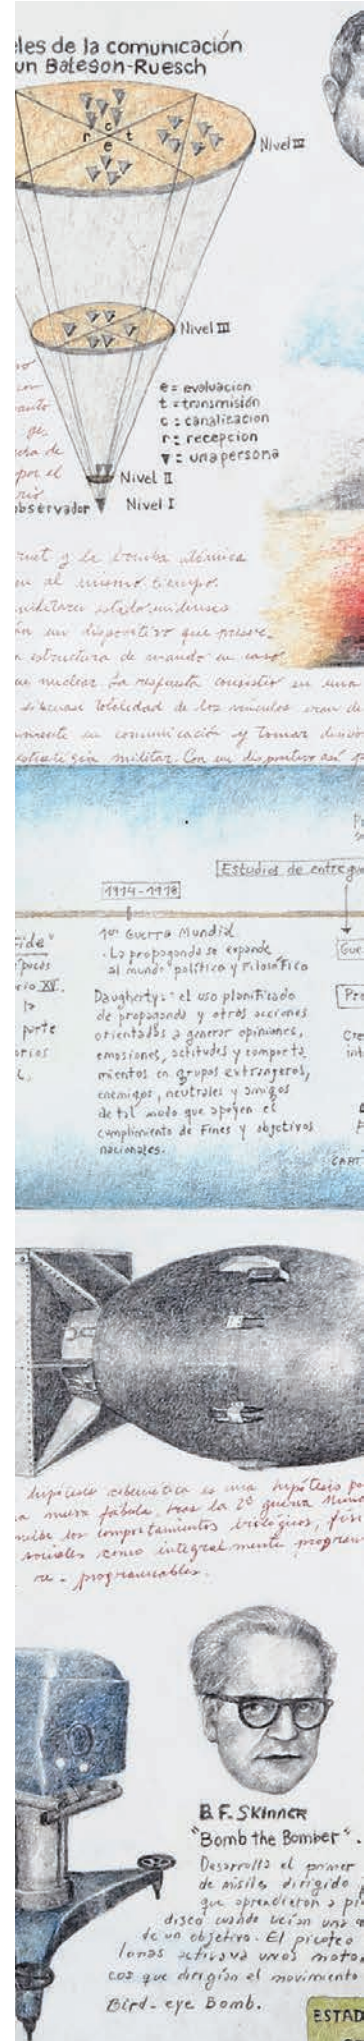 eles de la comunicación
un Bateson-Ruesch
c
r t
e
Nivel IV
Nivel III
e = evaluacion
t = transmisión
c = canalizacion
r = recepcion
▼ = una persona
Nivel II
observador Nivel I
por el
net y la bomba atómica
en al mismo tiempo.
militares estadounidenses
un dispositivo que preser-
estructura de mando en caso
que nuclear. La respuesta consistió en una
totalidad de los vínculos eran de
en comunicación y tomar
estrategia militar. Con un dispositivo así
Estudios de entre gue
1914-1918
1er Guerra Mundial
. La propaganda se expande
al mundo político y Filosófico
Daugherty: "el uso planificado
de propaganda y otras acciones
orientadas a generar opiniones,
emociones, actitudes y comporta
mientos en grupos extrangeros,
enemigos, neutrales y amigos
de tal modo que apoyen el
cumplimiento de Fines y objetivos
nacionales.
ide"
cio XV.
la
parte
Gue
Pro
Cre
int
CART
hipótesis cibernética es una hipótesis po
a nueva fábula, tras la 2ª guerra Mund
los comportamientos biológicos, físi
sociales como integralmente program
re-programables.
B.F. SKINNER
"Bomb the Bomber".
Desarrolla el primer
de misiles dirigido p
que aprendieron a pic
disco cuando veían una
de un objetivo. El picoteo
lomas activava unos moto
cos que dirigían el movimiento
Bird-eye Bomb.
ESTAD